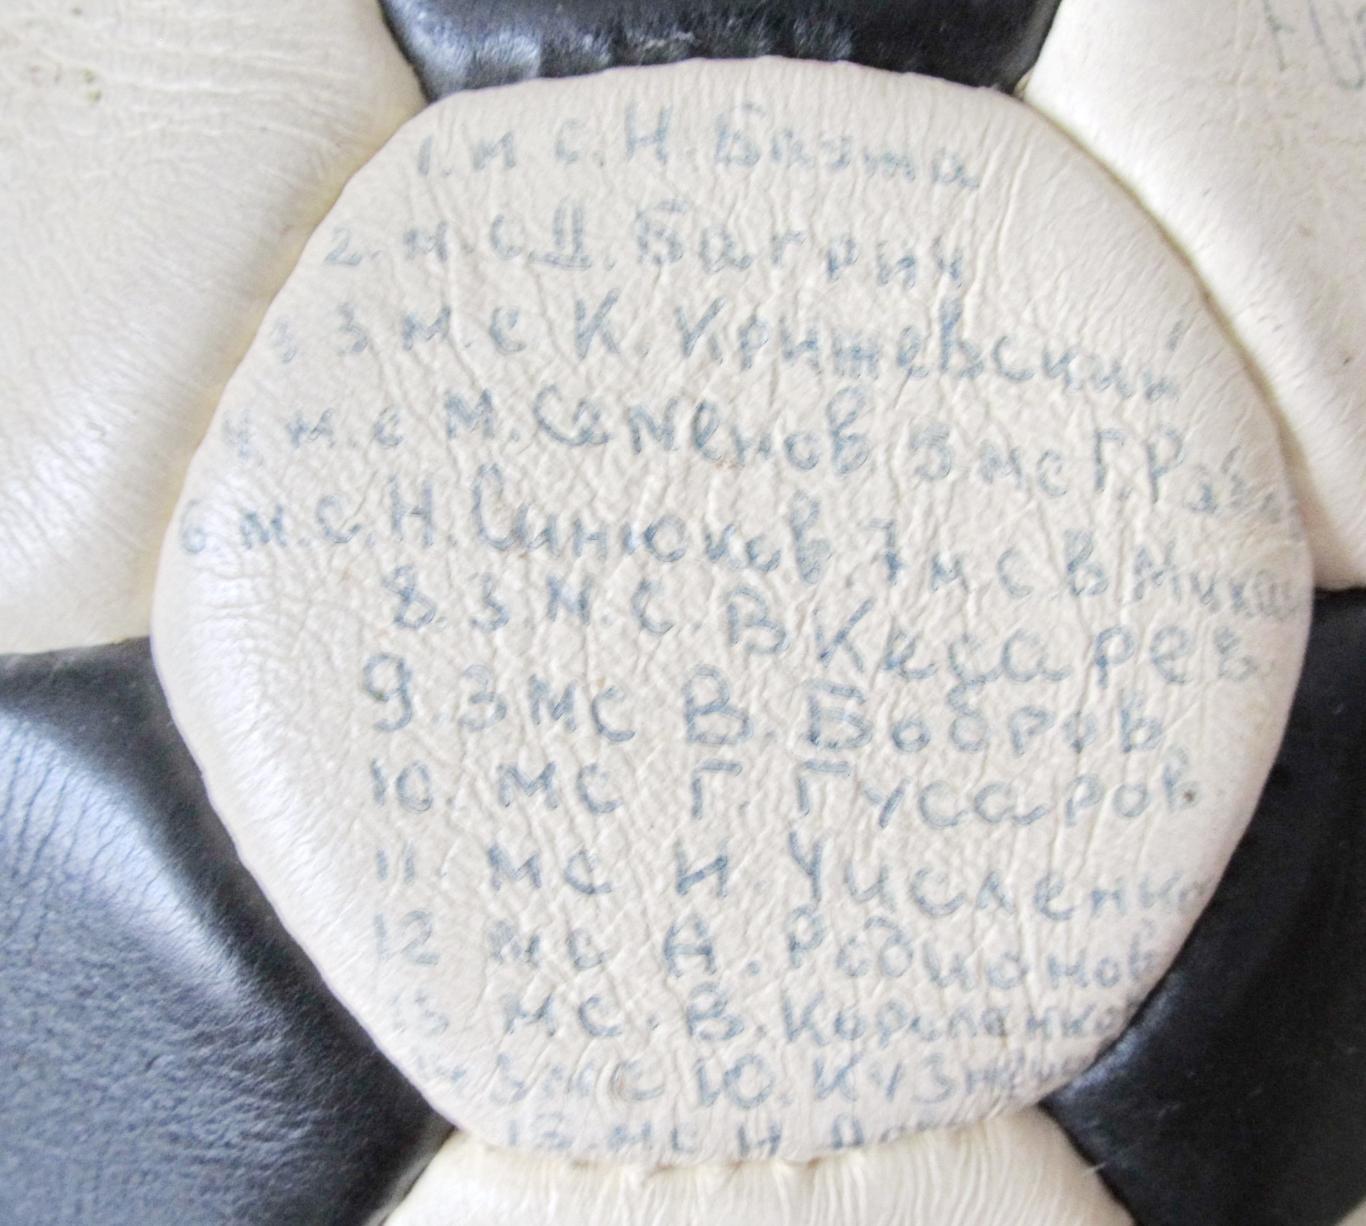 1. м с. Н. Баума
2. м. с. П. Багрич
3 З м. с К. Крижевский
4 м. с М. Семенов 5 мс Г. Ряз
6. м. с. Н. Синюков. 7 м с В Михаи
8. З. М. С. В Кесарев
9. З МС В. Бобров
10. МС Г. Гусаров
11. МС И. Численко
12 мс А. Родионов
13 МС. В. Короленко
14 Змс Ю. Кузнецо
15. мс Н